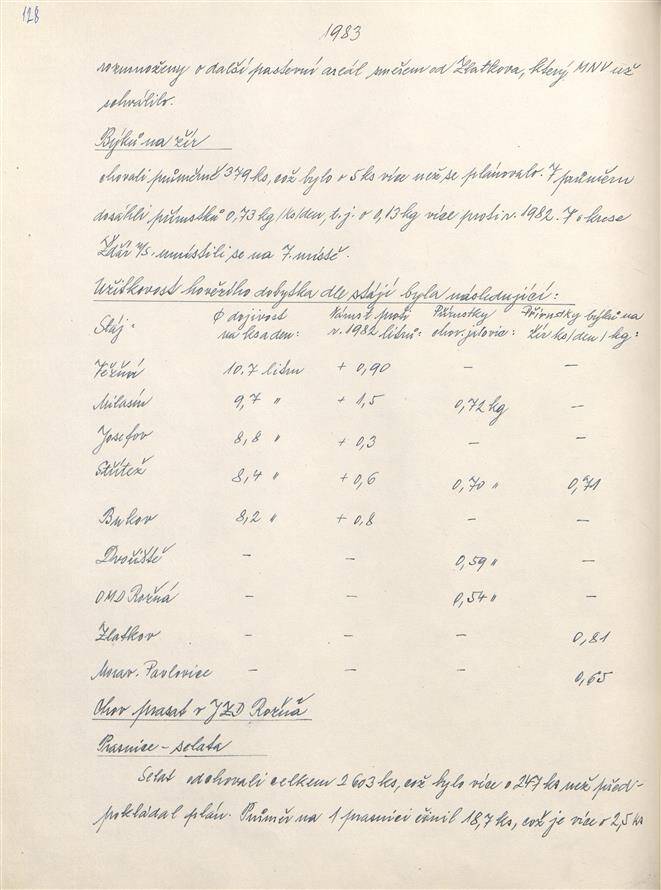 128
1983
rozmnoženy o další pastevní areál směrem od Zlatkova, který MNV už
schválilo.
Býků na žír
chovali průměrně 379 ks, což bylo o 5 ks více než se plánovalo. V průměru
dosáhli přírůstků 0,73 kg/ks/den, t.j. o 0,13 kg více proti r. 1982. V okrese
Žďár n/S. umístili se na 7. místě.
Užitkovost hovězího dobytka dle stájí byla následující:
Stáj: Ø dojivost Přírůstky Přírůstky býků na
na ks a den: r. 1982 litrů: chov. jalovic: žír ks/den/kg:
Věžná 10.7 litru + 0,90 – –
Milasín 9,7 " + 1,5 0,72 kg –
Josefov 8,8 " + 0,3 – –
Střítež 8,4 " + 0,6 0,70 " 0,71
Bukov 8,2 " + 0,8 – –
Dvořiště – – 0,59 " –
OMD Rožná – – 0,54 " –
Zlatkov – – – 0,81
Morav. Pavlovice – – – 0,65
Chov prasat v JZD Rožná
Prasnice – selata
Selat odchovali celkem 2 603 ks, což bylo více o 247 ks než před-
pokládal plán. Průměr na 1 prasnici činil 18,7 ks, což je více o 2,5 ks